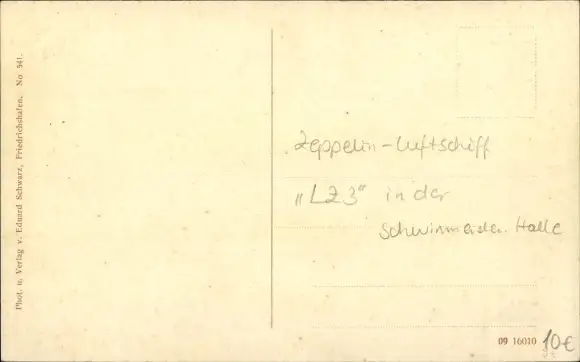 Phot. u. Verlag v. Eduard Schwarz, Friedrichshafen. No 541.
Zeppelin-Luftschiff
„LZ 3“ in der
Halle
09 16010
10€